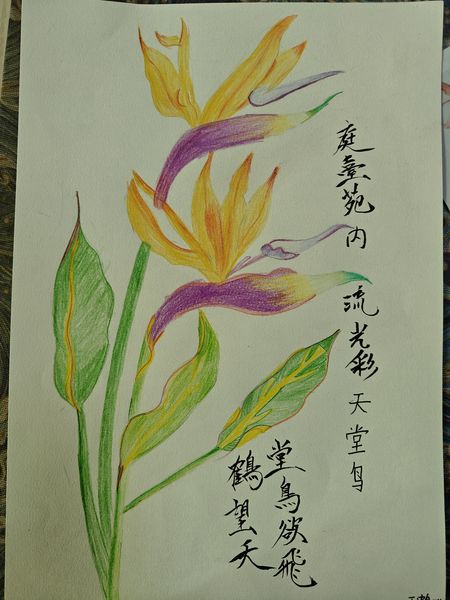 庭臺苑内 流光彩天堂鸟
堂鳥欲飛
鶴望天